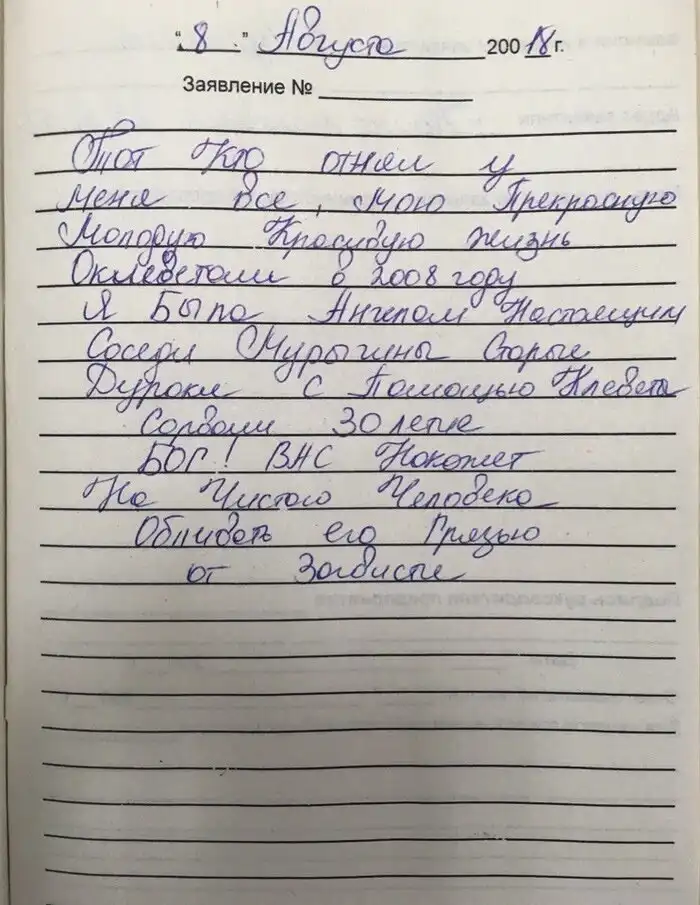 "8" Августа 200 18 г.
Заявление №
Тот Кто отнял у
меня все, мою Прекрасную
Молодую Красивую жизнь
Оклеветали в 2008 году
Я Была Ангелом Настоящим
Соседи Мурыгины Старые
Дураки С Помощью Клеветы
Сорвали 30 летие
БОГ! ВАС Накажет
На Чистого Человека
Обливать его Грязью
от Зависти